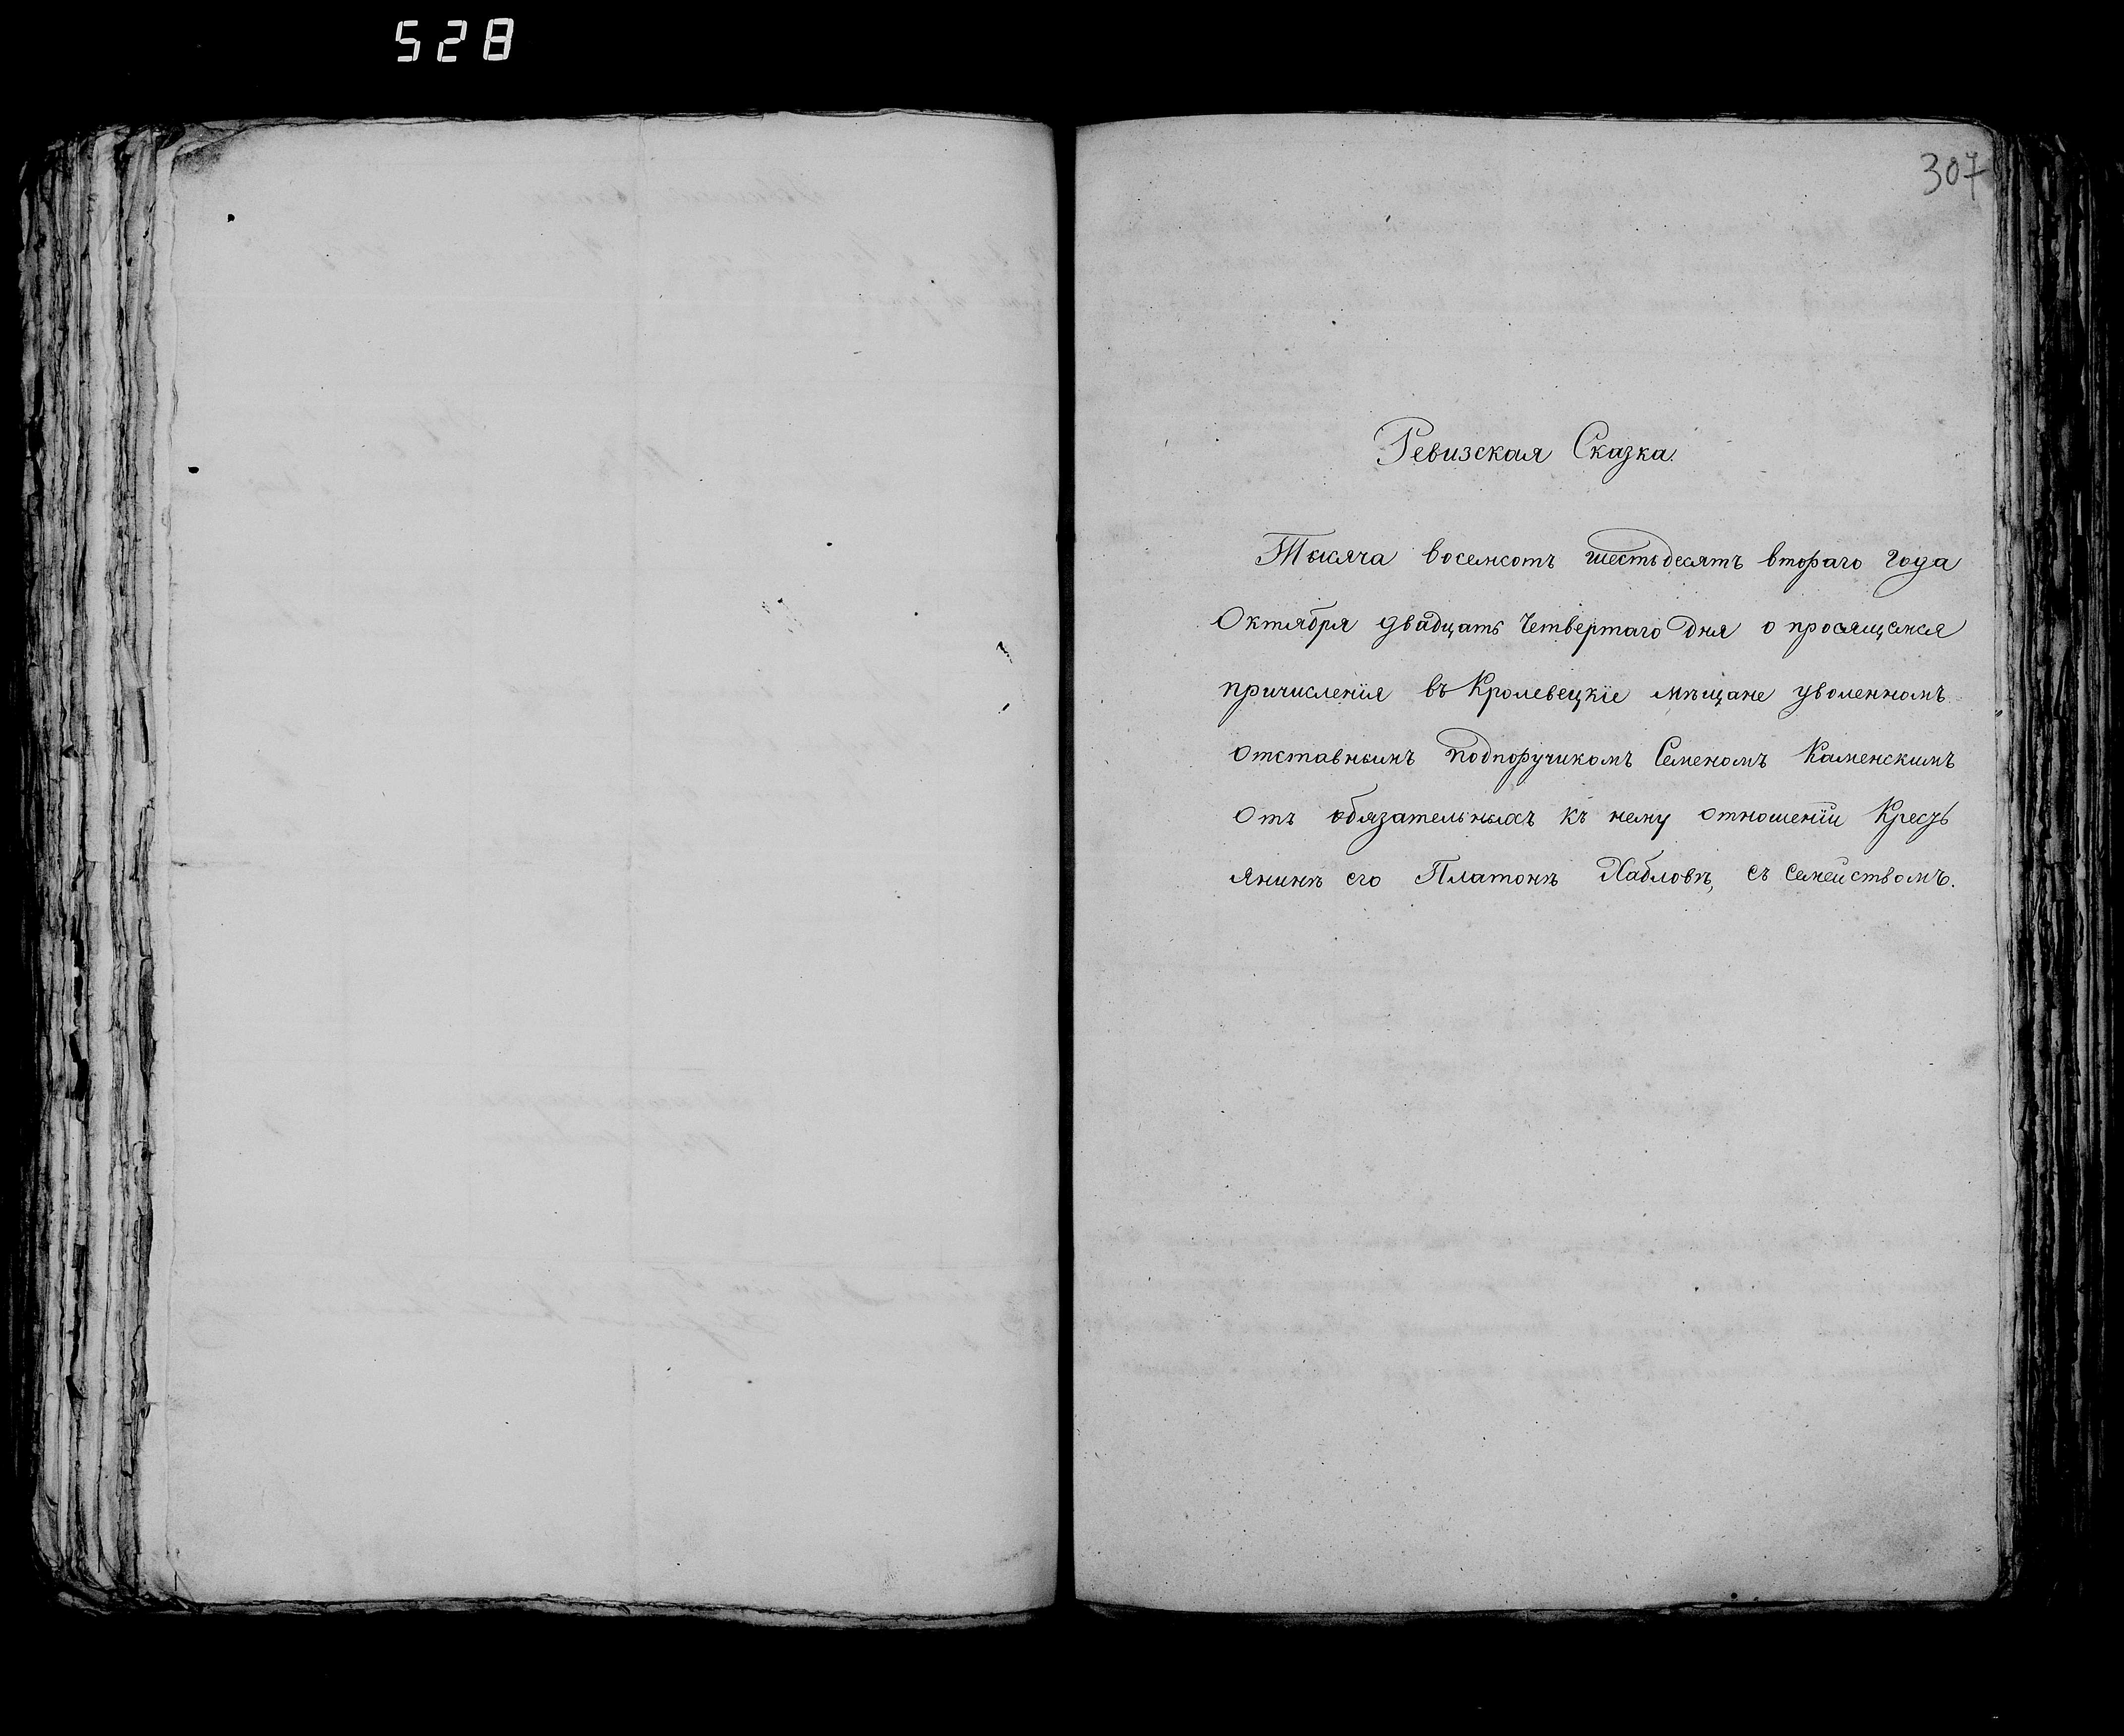 528
307
Ревизская Сказка.
Тысяча восемсотъ шестьдесятъ втораго года
Октября двадцать Четвертаго Дня о просящемся
причисленія въ Кролевецкіе мѣщане уволенномъ
отставнымъ подпоручикомъ Семеномъ Каменскимъ
Отъ обязательныхъ къ нему отношеніи Кресть
янинѣ его Платонѣ Хабловѣ, съ семействомъ.